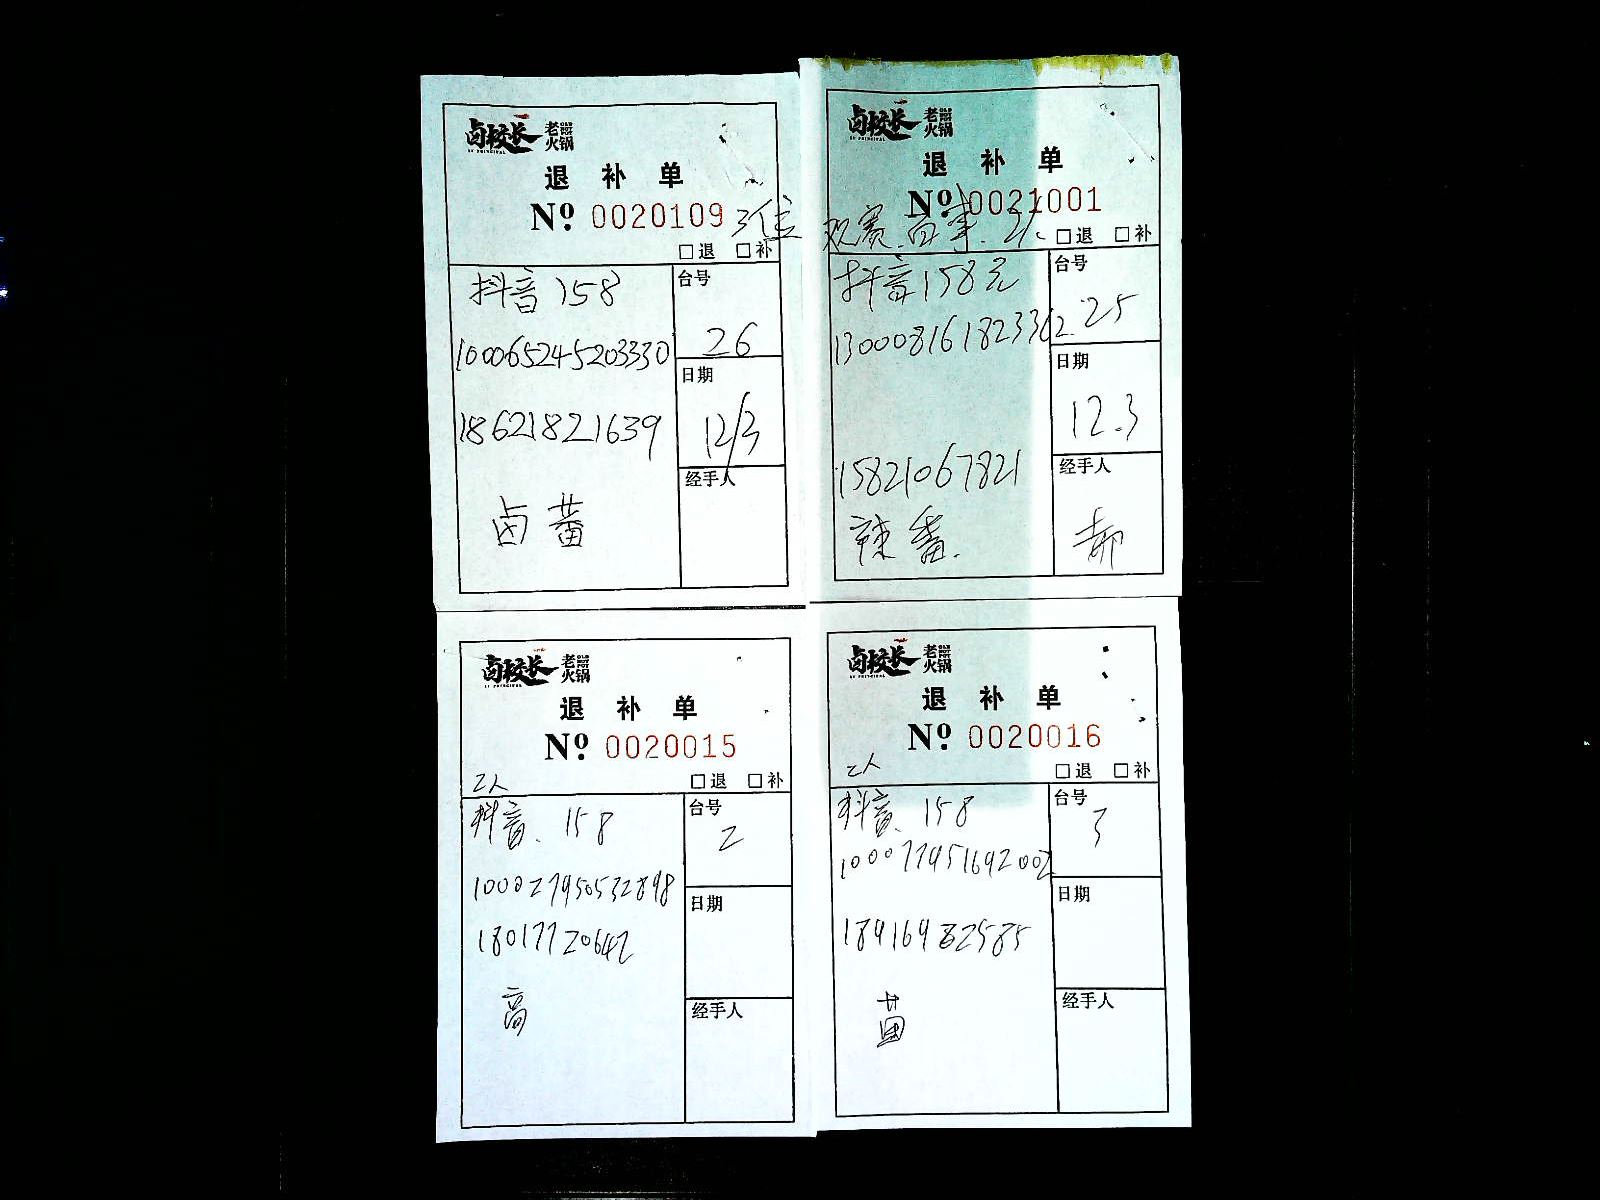 卤校长 老火锅
退 补 单
Nº. 0020109 3位
□退 □补
抖音158
台号
26
100065245203330
日期
12/3
18621821639
经手人
卤 蕃
卤校长 老火锅
退 补 单
Nº. 0021001
□退 □补
抖音158元
台号
25
130008161823362
日期
12.3
15821067821
经手人
辣 番.
郝
卤校长 老火锅
退 补 单
Nº. 0020015
2人
□退 □补
抖音. 158
台号
2
100027950532898
日期
18017720642
经手人
卤校长 老火锅
退 补 单
Nº. 0020016
2人
□退 □补
抖音. 158
台号
3
100077951692002
日期
18916982585
经手人